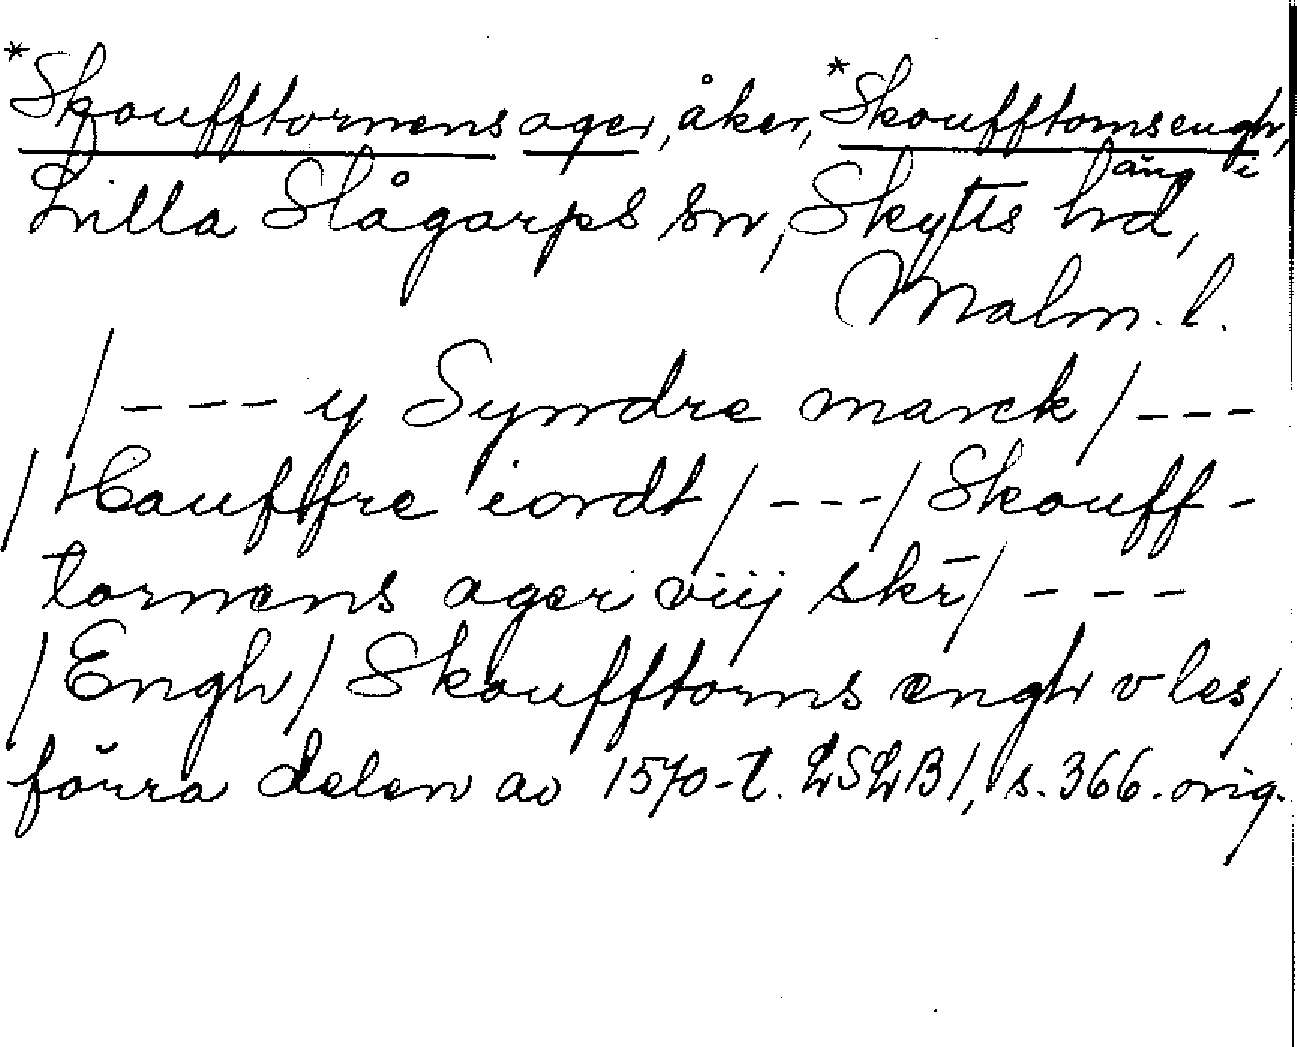 *Skoufftornens ager, åker, *Skoufftornsengh,
äng i
Lilla Slågarps sn, Skytts hd,
Malm. l.
/--- y Syndre marck/---
/Hauffre iordt/---/Skouff-
tornens ager viij skr̄/---
/Engh/Skoufftorns engh v les/
förra delen av 1570-t. LSLB1, s. 366. orig.